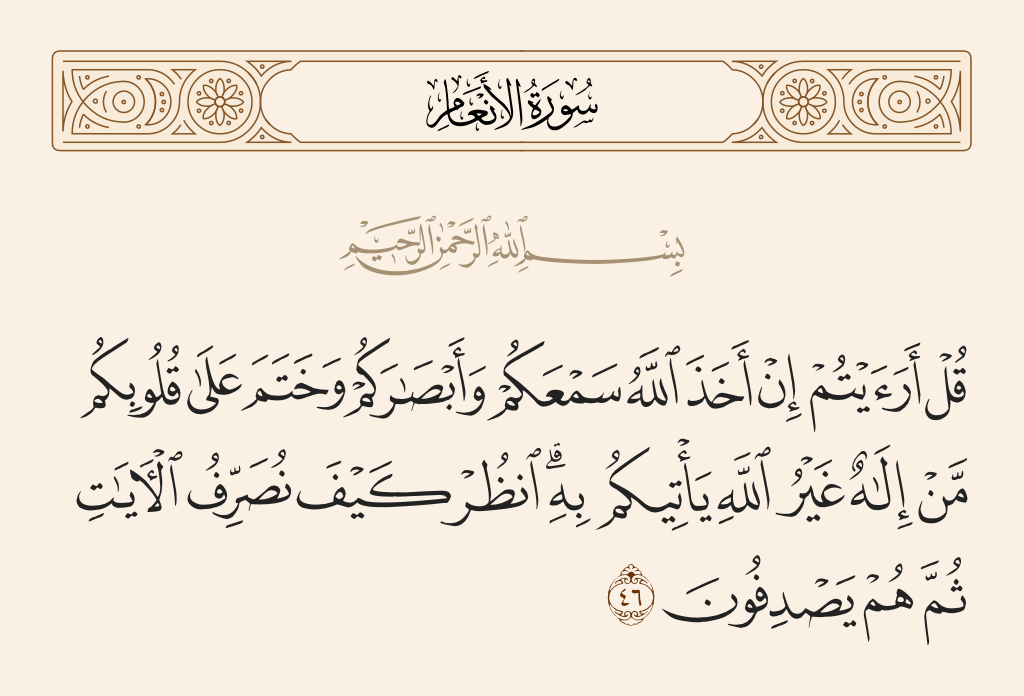 سُورَةُ الأَنْعَامِ
بِسْمِ ٱللَّهِ ٱلرَّحْمَٰنِ ٱلرَّحِيمِ
قُلْ أَرَءَيْتُمْ إِنْ أَخَذَ ٱللَّهُ سَمْعَكُمْ وَأَبْصَٰرَكُمْ وَخَتَمَ عَلَىٰ قُلُوبِكُم
مَّنْ إِلَٰهٌ غَيْرُ ٱللَّهِ يَأْتِيكُم بِهِۗ ٱنظُرْ كَيْفَ نُصَرِّفُ ٱلْـَٔايَٰتِ
ثُمَّ هُمْ يَصْدِفُونَ ٤٦